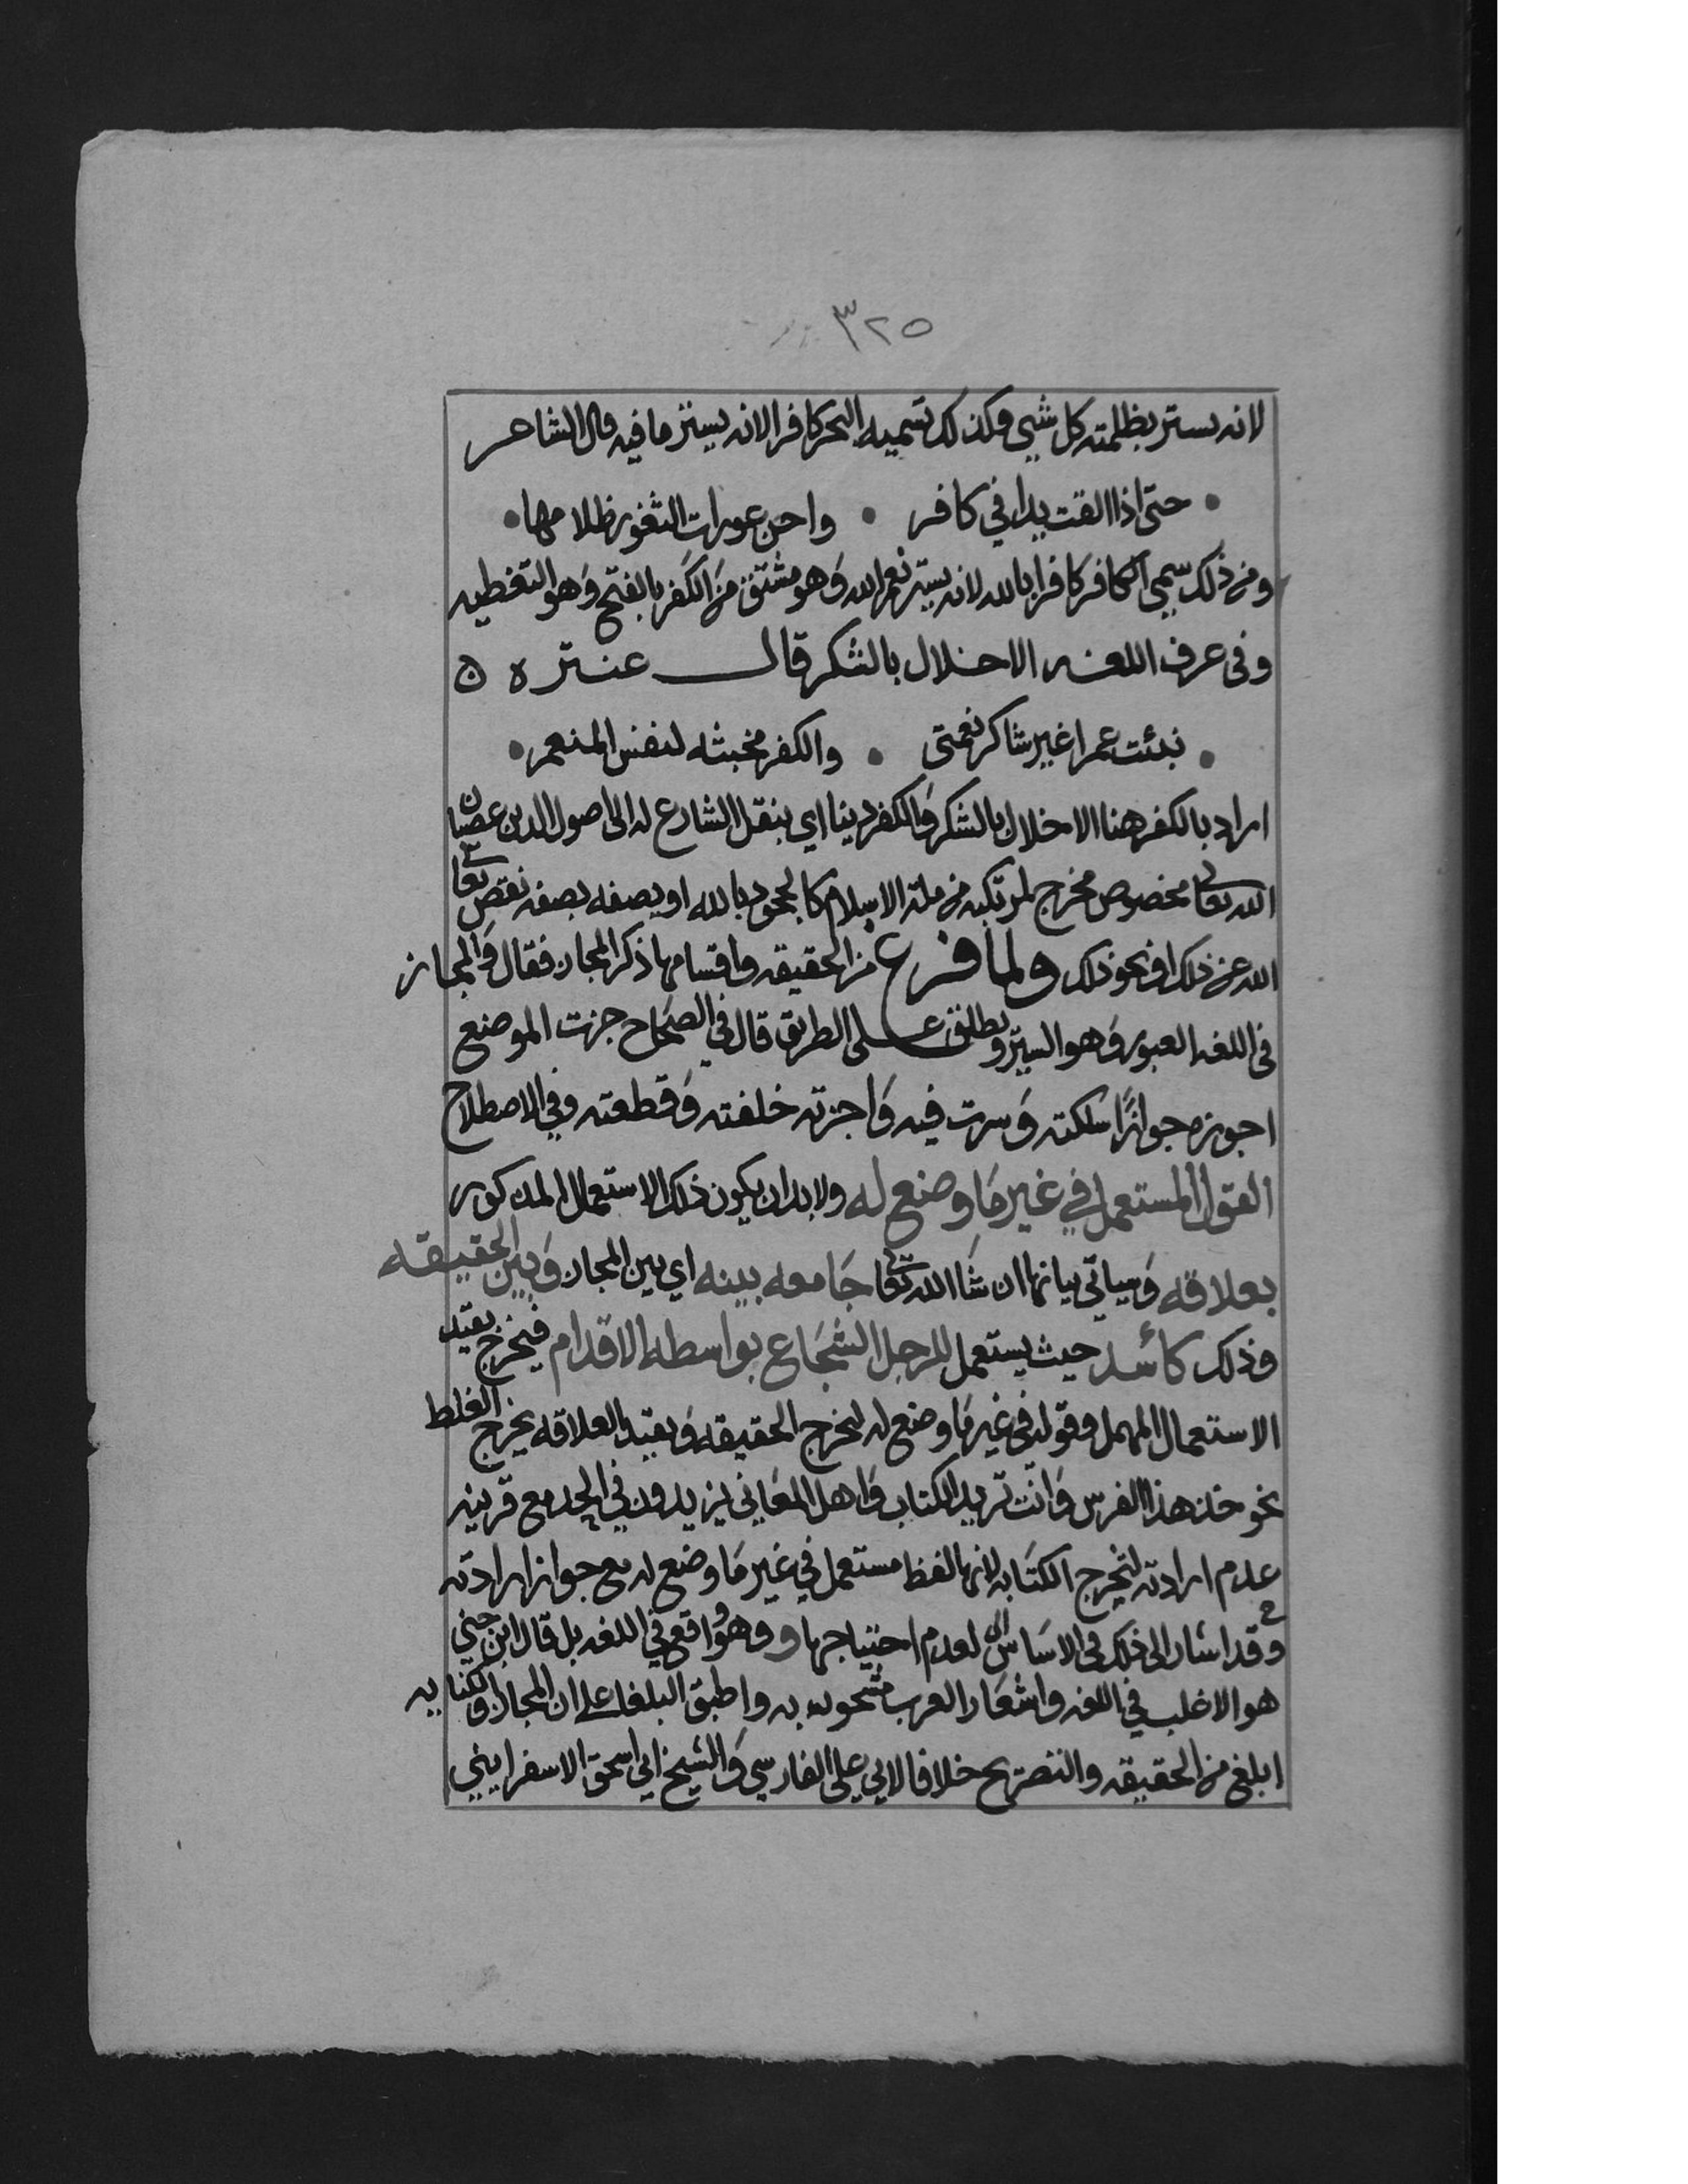 ٣٢٥
لانه يستر بظلمته كل شيي وكذلك تسميه البحر كافرا لانه يستر ما فيه قال الشاعر
حتى اذا القت يدا في كافر • واجن عورات الثغور ظلامها
ومن ذلك سمي الكافر كافرا بالله لانه يستر نعم الله وَهو مشتق منَ الكَفر بالفتح وَهو التغطيه
وفى عرف اللغه الاخلال بالشكر قال عنتره ه
نبئت عمرا غير شاكر نعمتى • والكفر مخبثه لنفس المنعم
اراد بالكفر هنا الاخلال بالشكر وَالكفر دينا اي بنقل الشارع له الى اصول الدين عصيان
الله تعالى مخصوص مخرج لمرتكبه من ملة الاسلام كالجحود بالله او يصفه بصفه نقص تعالى
الله عن ذلك او نحو ذلك ولما فرغ من الحقيقه واقسامها ذكر المجاز فقال وَالمجاز
في اللغه العبور وَهو السير ويطلق على الطريق قال في الصحَاح جزت الموضع
اجوزه جوازًا سلكته وَسرت فيه وَاجزته خلفته وَقطعته وفي الاصطلاح
القول المستعمل في غير مَا وضع له ولا بد ان يكون ذلك الاستعمال المذكور
بعلاقه وَسياتي بيانها ان شَا الله تعالى جَامعه بينه اي بين المجاز وَبين الحقيقه
وذلك كأسد حيث يستعمل للرجل الشجَاع بواسطه الاقدام فيخرج بقيد
الاستعمال المهمل وقوله في غير مَا وضع له لتخرج الحقيقه وَبقيد العلاقه يخرج الغلط
نحو خذ هذا الفرس وَانت تريد الكتاب وَاهل المعَاني يزيدون في الحد مع قرينه
عدم ارادته لتخرج الكنَايه لانها لفظ مستعمل في غير مَا وضع له مع جواز ارادته
وقد اشار الى ذلك في الاسَاس لعدم احتياجها و وهو وَاقع في اللغه بل قال ابن جني
هو الاغلب في اللغه واشعَار العرب مشحونه به واطبق البلغا على ان المجاز والكنايه
ابلغ من الحقيقه والتصريح خلافا لابي علي الفارسي وَالشيخ ابي اسحق الاسفراييني